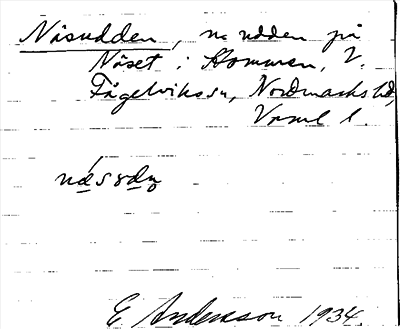 Näsudden, nv udden på
Näset i Hommen, V.
Fågelviks sn, Nordmarks hd,
Vrml l.
E Andersson 1934.